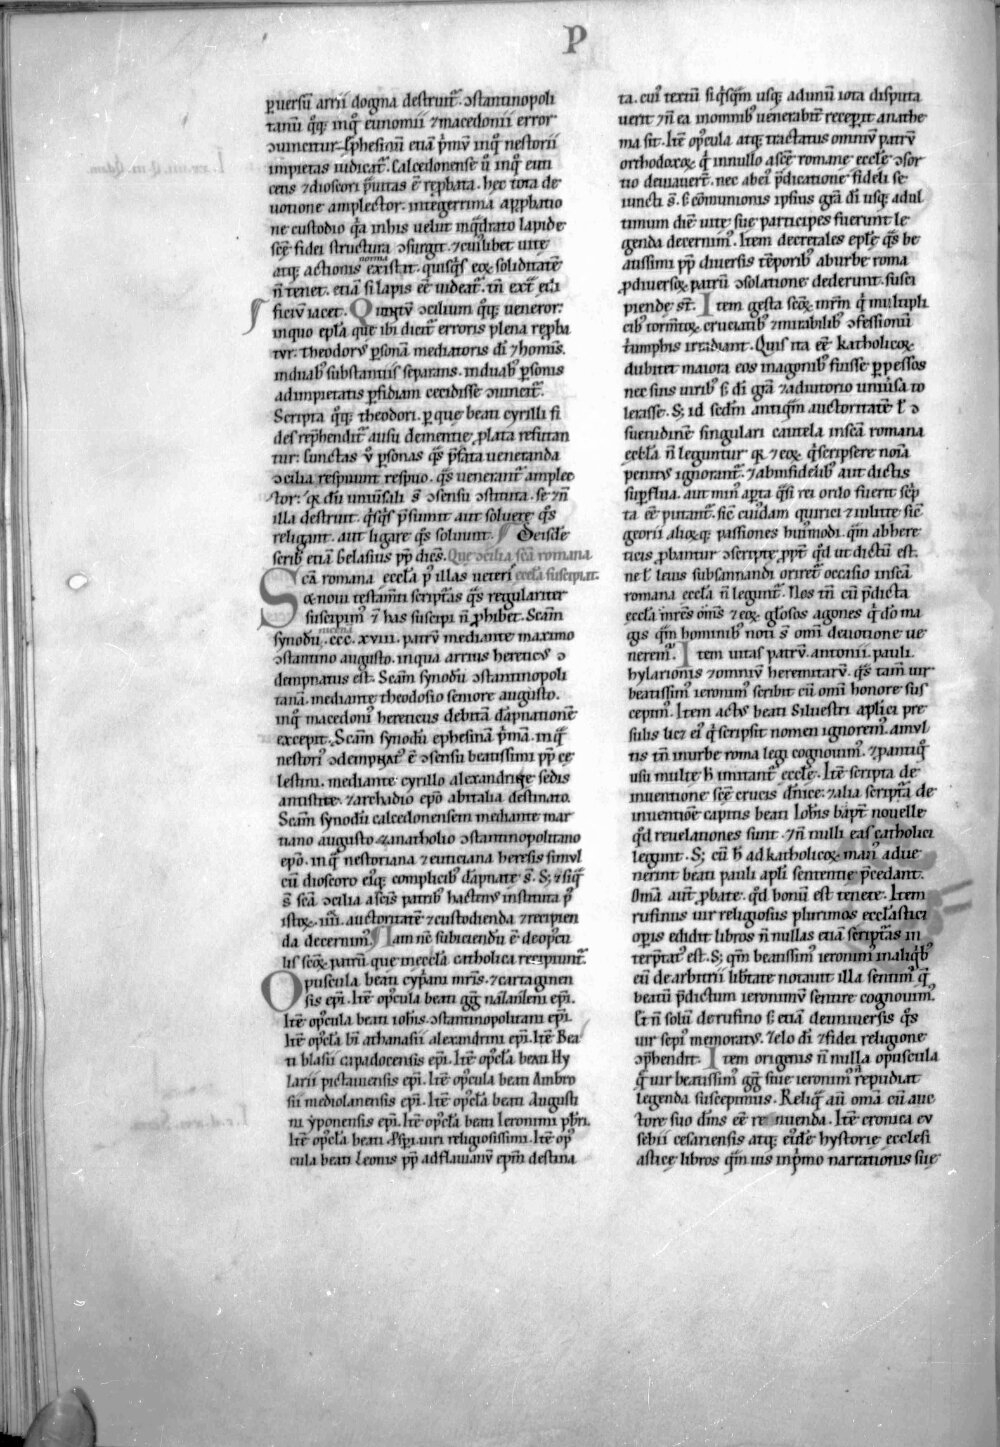 P
ꝑuersũ arrii dogma destruit᷑. ↄstantinopoli
tanũ qͦꝗ; inqͦ eunomii ⁊macedonii error
ↄuincitur. Ephesinũ etiã p̾mũ inqͦ nestorii
impietas iudicat᷑. Calcedonense ů inqͦ euti
cetis ⁊dioscori prauitas ē rep̃bata. hec tota de
uotione amplector. integerrima ap̃ꝓbatio
ne custodio qͥa inhis uelut inqͣdrato lapide
scē fidei structura ↄsurgit. ⁊cuilibet uite
atꝗ; actionis norma existit. quisqͥs eoꝝ soliditatē
ñ tenet. etiã si lapis eē uideat᷑. tñ ext̃ edi
ficiũ iacet. Qͥintũ ↄcilium qͦꝗ; ueneror.
inquo epl̃a que ibi dicit᷑ erroris plena rep̃ba
tur. theodorꝰ ꝑsonã mediatoris dĩ ⁊hominũ.
induabꝰ substantiis separans. induabꝰ ꝑsonis
adimpietatis ꝑfidiam cecidisse ↄuincit᷑.
Scripta qͦꝗ; theodori. ꝑ que beati cyrilli fi
des rep̃hendit᷑ ausu dementie ꝓlata refutan
tur: cunctas ů ꝑsonas qͣs p̃fata ueneranda
ↄcilia respuunt respuo. qͣs uenerant᷑ amplec
tor: qͥa dũ uniůsali s̃ ↄsensu ↄstituta. se ⁊ñ
illa destruit. qͥsqͥs p̃sumit aut soluere qͦs
religant. aut ligare qͦs soluunt. ¶ Deisdē
scribit etiã Gelasius pp̃ dicēs. Que ↄcilia scã romana
Scã romana eccl̃a pꝰ illas ueteri eccl̃a suscipiat.
⁊ noui testam̃ti scripturas qͣs regulariter
suscipimꝰ ⁊ has suscipi ñ ꝓhibet. Scam̃
synodũ nicena .ccc. xviii. patrũ mediante maximo
ↄstantino augusto. inqua arrius hereticꝰ ↄ
dempnatus est. Scam̃ synodũ ↄstantinopoli
tanã. mediante theodosio seniore augusto.
inqͣ macedoniꝰ hereticus debitã dãpnationē
excepit. Scam̃ synodũ ephesinã p̾mã. inqͣ
nestoriꝰ ↄdempnatꝰ ē ↄsensu beatissimi pp̃ ce
lestini. mediante cyrillo alexandrine sedis
antistite. ⁊archadio ep̃o abitalia destinato.
Scam̃ synodũ calcedonensem mediante mar
tiano augusto ⁊anatholio ↄstantinopolitano
ep̃o. inqͣ nestoriana ⁊euticiana heresis simul
cũ dioscoro eiꝰꝗ; complicibꝰ dãpnate s̃. S; ⁊siqͣ
s̃ scã ↄcilia ascis patribꝰ hactenꝰ instituta pꝰ
istoꝝ .iiii. auctoritatē ⁊custodienda ⁊recipien
da decernimꝰ. Iam nc̃ subiciendũ ē deopcu
lis scoꝝ patrũ que ineccl̃a catholica recipiunt᷑.
Opuscula beati cyp̃ani mr̃is. ⁊cartaginen
sis ep̃i. Itē opꝰcula beati gg̃ nazanzeni ep̃i.
Itē opꝰcula beati ioh̃is. ↄstantinopolitani ep̃i.
Itē opꝰcl̃a bĩ athanasii alexandrini ep̃i. Itē Bea
ti blasii capadocensis ep̃i. Itē opꝰcl̃a beati Hy
larii pictauiensis ep̃i. Itē opꝰcula beati Ambro
sii mediolanensis ep̃i. Itē opꝰcl̃a beati Augusti
ni ẏponensis ep̃i. Itē opꝰcl̃a beati Ieronimi pb̃ri.
Itē opꝰcl̃a beati Ꝓsp̃i uiri religiosissimi. Itē opꝰ
cula beati Leonis pp̃ adflauianũ ep̃m destina
ta. cuiꝰ textũ si qͥsqͣm usꝗ; adunũ iota disputa
uerit ⁊ñ ea inomnibꝰ uenerabilit᷑ receꝑit anathe
ma sit. Itē opꝰcula atꝗ; tractatus omnĩu patrũ
orthodoxoꝝ qͥ innullo ascē romane eccl̃e ↄsor
tio deuiauert̃. nec abeiꝰ p̃dicatione fideli se
iuncti s̃. s̃ cõmunionis ipsius gr̃a dĩ usꝗ; adul
timum diē uite sue participes fuerunt le
genda decernimꝰ. Item decretales epl̃e qͣs be
atissimi pp̃ diuersis tēporibꝰ aburbe roma
ꝓdiuersoꝝ patrũ ↄsolatione dederunt. susci
piende st̃. Item gesta scoꝝ mr̃m qͥ multipli
cibꝰ torm̃toꝝ cruciatibꝰ ⁊mirabilibꝰ ↄfessionũ
t̾umphis irradiant. Quis ita eē katholicoꝝ
dubitet maiora eos inagonibꝰ fuisse ꝑpessos
nec suis uiribꝰ s̃ dĩ gr̃a ⁊adiutorio uniůsa to
lerasse. S; id scdm̃ antiqͣm auctoritatē l̃ ↄ
suetudinē singulari cautela inscã romana
eccl̃a ñ leguntur qͥa ⁊ eoꝝ qͥ scripsere noĩa
penitꝰ ignorant᷑. ⁊abinfidelibꝰ aut dictis
suꝑflua. aut minꝰ aꝑta qͣsi rei ordo fuerit sc̾p
ta eē putant᷑. sic̃ cuiꝰdam quirici ⁊iulitte sic̃
georii alioꝝꝗ; passiones huiꝰmodi. qͣm abhere
ticis ꝓbantur ↄscripte ꝓpt᷑ qͦd ut dictũ est.
ne l̃ leuis subsannandi oriret᷑ occasio inscã
romana eccl̃a ñ legunt᷑. Nos tñ cũ p̃dicta
eccl̃a mr̃es om̃s ⁊ eoꝝ gl̃osos agones qͥ dõ ma
gis qͣm hominibꝰ noti s̃ omĩ deuotione ue
neremꝰ. Item uitas patrũ. antonii. pauli.
hylarionis ⁊omniũ heremitarũ. qͣs tam̃ uir
beatissimꝰ ieronimꝰ scribit cũ omĩ honore sus
cepimꝰ. Item actꝰ beati Siluestri ap̃lici pre
sulis licꝫ eiꝰ qͥ scripsit nomen ignoremꝰ. amul
tis tñ inurbe roma legi cognouimꝰ. ⁊pantiqͦ
usu multe h̃ imitant᷑ eccl̃e. Itē scripta de
inuentione scē crucis dñice. ⁊alia scripta de
inuentiõe capitis beati Ioh̃is bap̃t nouelle
qͥd reuelationes sunt. ⁊ñ nulli eas catholici
legunt. S; cũ h̃ ad katholicoꝝ manꝰ adue
nerint beati pauli apl̃i sententie p̃cedant.
Om̃a aut̃ ꝓbate. qͦd bonũ est tenete. Item
rufinus uir religiosus plurimos eccl̃astici
opis edidit libros ñ nullas etiã scripturas in
terp̃tatꝰ est. S; qͣm beatissimꝰ ieronimꝰ inaliqͥbꝰ
eũ de arbitrii lib̃tate notauit illa sentimꝰ qͣ
beatũ p̃dictum ieronimũ sentire cognouimꝰ.
Et ñ solũ derufino s̃ etiã deuniuersis qͦs
uir sepiꝰ memoratꝰ. zelo dĩ ⁊fidei religione
rep̃hendit. Item origenis ñ nulla opuscula
qͥ uir beatissimꝰ gg̃ siue ieronimꝰ ñ repudiat
legenda suscepimus. Reliqͣ aũ om̃a cũ auc
tore suo dñs eē renuenda. Itē cronica eu
sebii cesariensis atꝗ; eiꝰdē hystorie ecclesi
astice libros qͣm uis inp̾mo narrationis sue